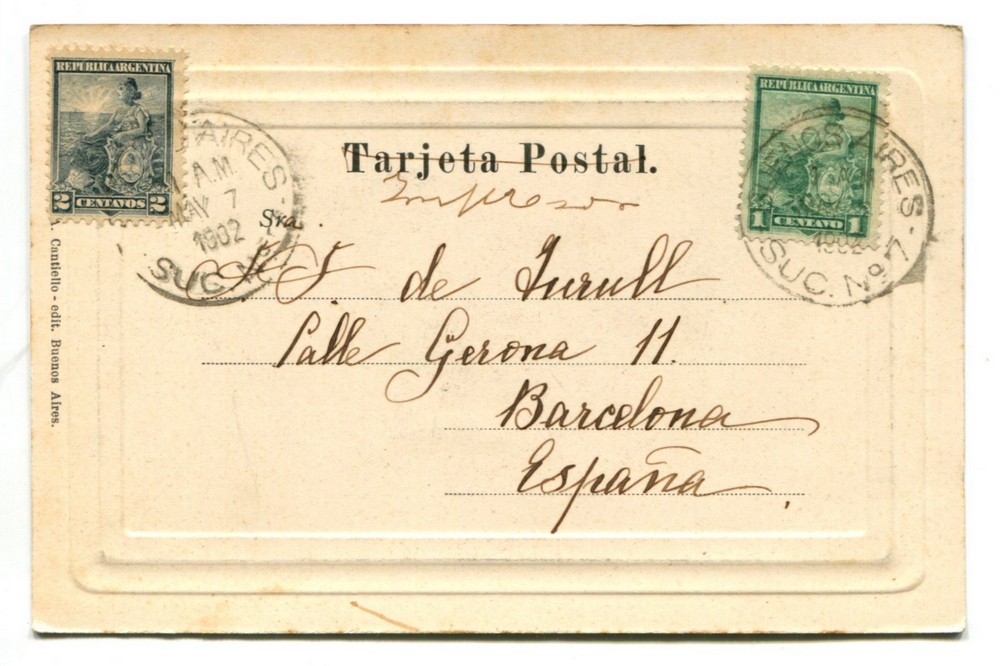 REPUBLICA ARGENTINA
2 CENTAVOS 2
AIRES
A.M.
MAY 7
1902
SUC
REPUBLICA ARGENTINA
1 CENTAVO 1
BUENOS AIRES
1902
SUC. Nº 7
Tarjeta Postal.
Impresos
Sra.
de Turull
Calle Gerona 11.
Barcelona
España
Cantiello - edit. Buenos Aires.